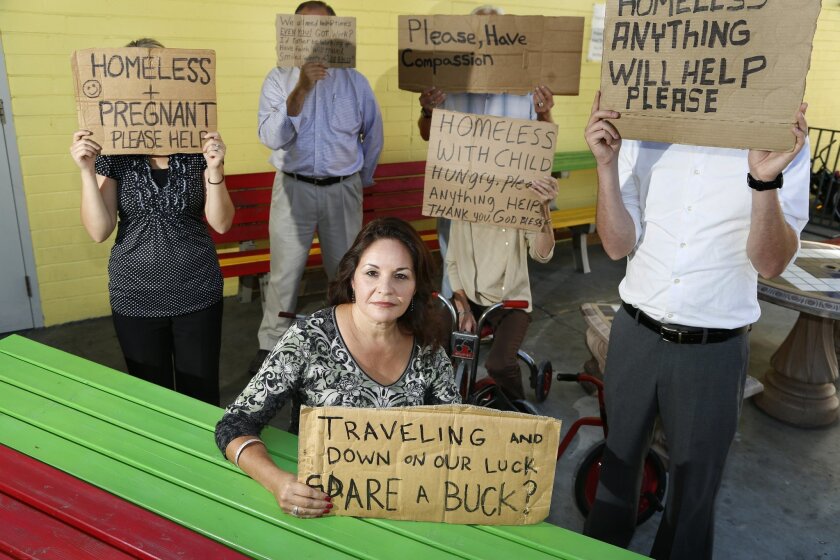 HOMELESS
+
PREGNANT
PLEASE HELP
We all need help sometimes
EVEN YOU! GOT WORK?
Please, Have
Compassion
HOMELESS
WITH CHILD
HUNGRY. Please
ANYTHING HELPS
THANK YOU, GOD BLESS
HOMELESS
ANYTHING
WILL HELP
PLEASE
TRAVELING AND
DOWN ON OUR LUCK
SPARE A BUCK?